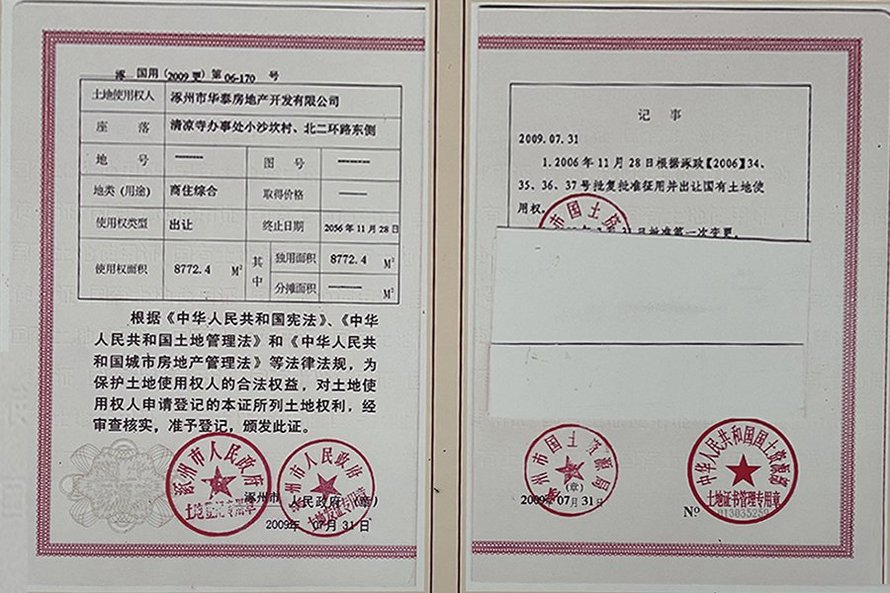 涿 国用 (2009更) 第 06-170 号
土地使用权人 涿州市华泰房地产开发有限公司
座 落 清凉寺办事处小沙坎村、北二环路东侧
地 号 —— 图 号 ——
地类 (用途) 商住综合 取得价格 ——
使用权类型 出让 终止日期 2056 年 11 月 28 日
使用权面积 8772.4 M² 其中 独用面积 8772.4 M²
分摊面积 —— M²
根据《中华人民共和国宪法》、《中华
人民共和国土地管理法》和《中华人民共
和国城市房地产管理法》等法律法规，为
保护土地使用权人的合法权益，对土地使
用权人申请登记的本证所列土地权利，经
审查核实，准予登记，颁发此证。
涿州市人民政府
土地登记专用章
涿州市人民政府
涿州市 人民政府 (章)
2009年 07 月 31 日
记 事
2009.07.31
1. 2006 年 11 月 28 日根据涿政【2006】34、
35、36、37 号批复批准征用并出让国有土地使
用权。
市国土资
日批准第一次变更。
涿州市国土资源局
(章)
2009年 07 月 31 日
中华人民共和国国土资源部
土地证书管理专用章
Nº 013035259